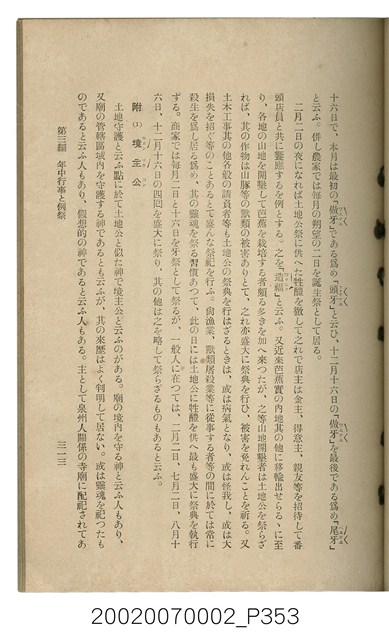 十六日で、本月は最初の「做牙」である爲め「頭牙」と云ひ、十二月十六日の「做牙」を最後である爲め「尾牙」
と云ふ。併し農家では毎月の朔望の二日を誕生祭として居る。
二月二日の夜になれば土地公祭に供へた牲醴を徹して之れで店主は金主、得意主、親友等を招待して番
頭店員と共に饗應するを例とする。之を「造福」と云ふ。又近來芭蕉實の内地其の他に移輸出せらるゝに至
り、各地の山地を開鑿して芭蕉を栽培する者頗る多きを加へ來つたが、之等山地開鑿者は土地公を祭らざ
れば、其の作物は山豚等の獸類の被害ありとて、之れ亦盛大に祭典を行ひ、被害を免れんことを祈る。又
土木工事其の他各般の請負者等も土地公の祭典を行はざるときは、或は病氣となり、或は怪我し、或は大
損失を招ぐ等のことあるとて盛んな祭祀を行ふ。尙漁業、獸類屠殺業等に從事する者等の間に於ては常に
殺生を爲し居る爲め、其の靈魂を祭る習慣あつて、此の日には土地公に牲醴を供へ最も盛大に祭典を執行
する。商家では毎月二日と十六日を牙祭として祭るが、一般人に在つては、二月二日、七月二日、八月十
六日、十二月十六日の四囘を盛大に祭り、其の他は之を略して祭らざるものもあると云ふ。
附(1) 境主公
土地守護と云ふ點に於て土地公と似た神で境主公と云ふのがある。廟の境内を守る神と云ふ人もあり、
又廟の管轄區域内を守護する神であるとも云ふが、其の來歷はよく判明して居ない。或は靈魂を祀つたも
のであると云ふ人もあり、假想的の神であると云ふ人もある。主として泉州人關係の寺廟に配祀されてあ
第三編 年中行事と例祭
三二三
20020070002_P353